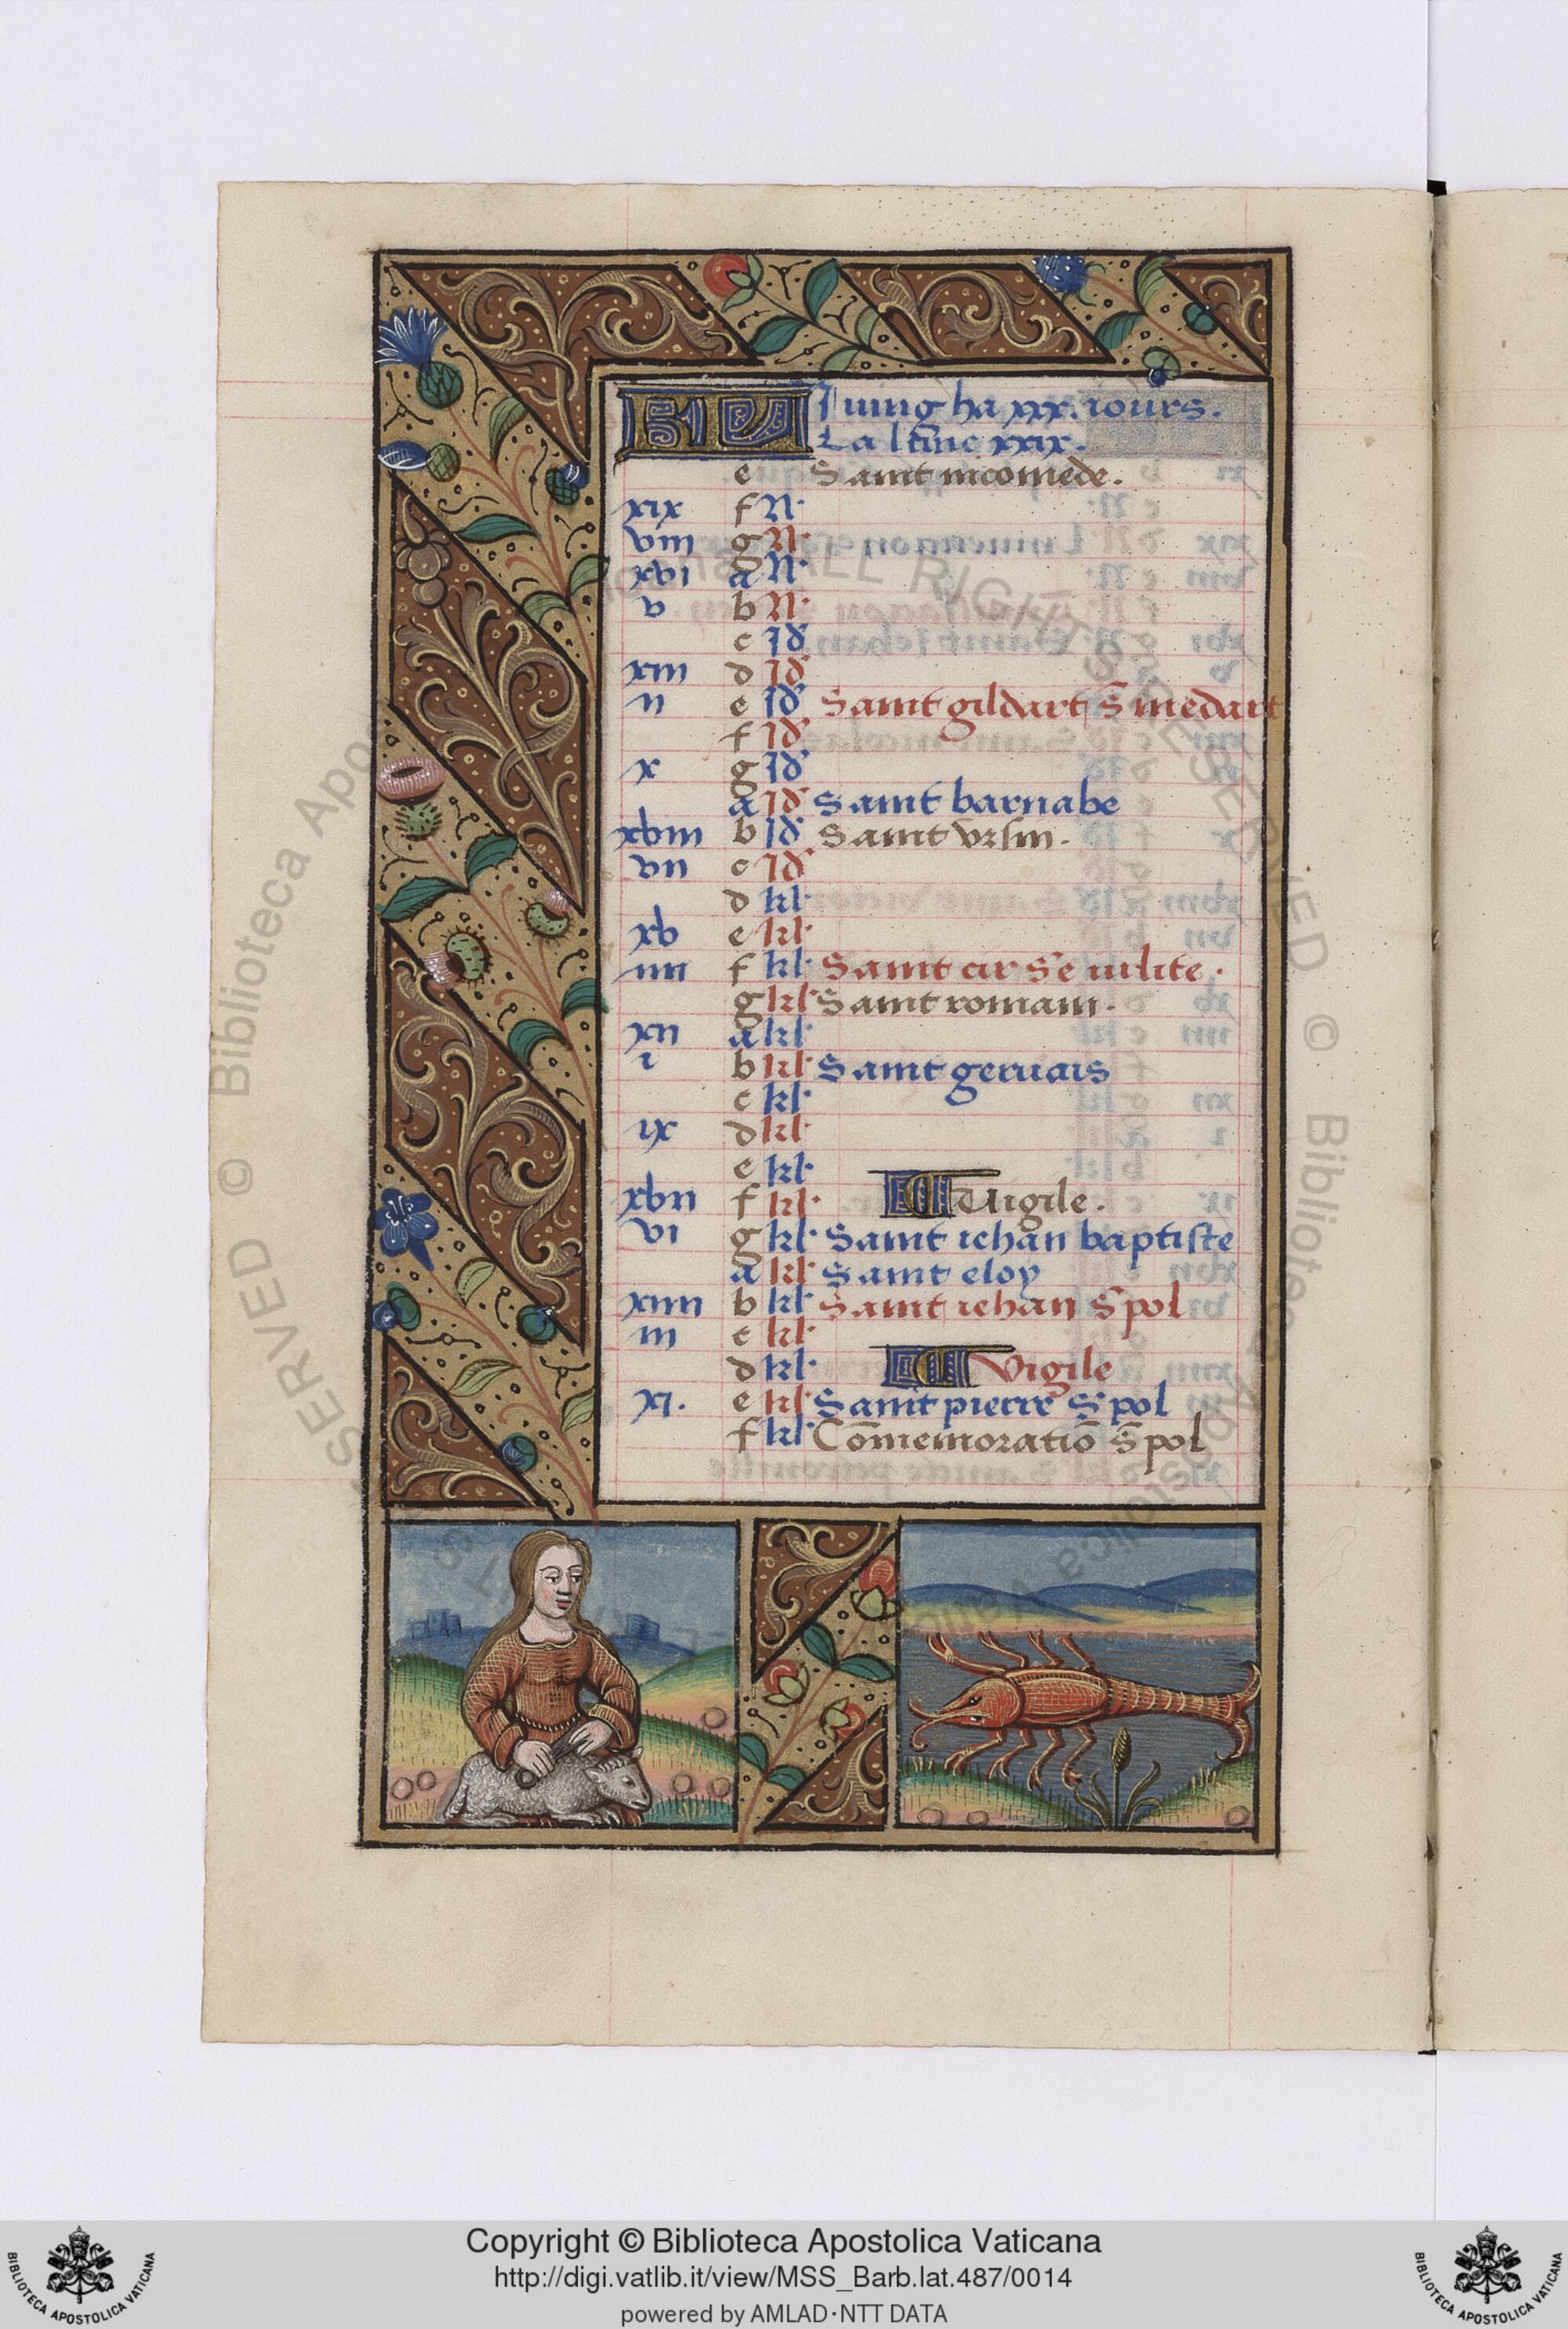 KL Iuing ha xxx. iours.
La lune xxix.
e Saint nicomede.
xix f N.
viii g N.
xvi a N.
v b N.
c Id
xiii d Id
ii e Id Saint gildart s medart
f Id
x g Id
a Id Saint barnabe
xviii b Id Saint vrsin.
vii c Id
d kl.
xv e kl.
iiii f kl. Saint cir s'e iulite.
g kl. Saint romain.
xii a kl.
i b kl. Saint geruais
c kl.
ix d kl.
e kl.
xvii f kl. Vigile.
vi g kl. Saint iehan baptiste
a kl. Saint eloy
xiiii b kl. Saint iehan s pol
iii c kl.
d kl. Vigile
xi. e kl. Saint pierre s pol
f kl. Cōmemoratiō s pol
Copyright © Biblioteca Apostolica Vaticana
http://digi.vatlib.it/view/MSS_Barb.lat.487/0014
powered by AMLAD·NTT DATA
BIBLIOTECA APOSTOLICA VATICANA
BIBLIOTECA APOSTOLICA VATICANA